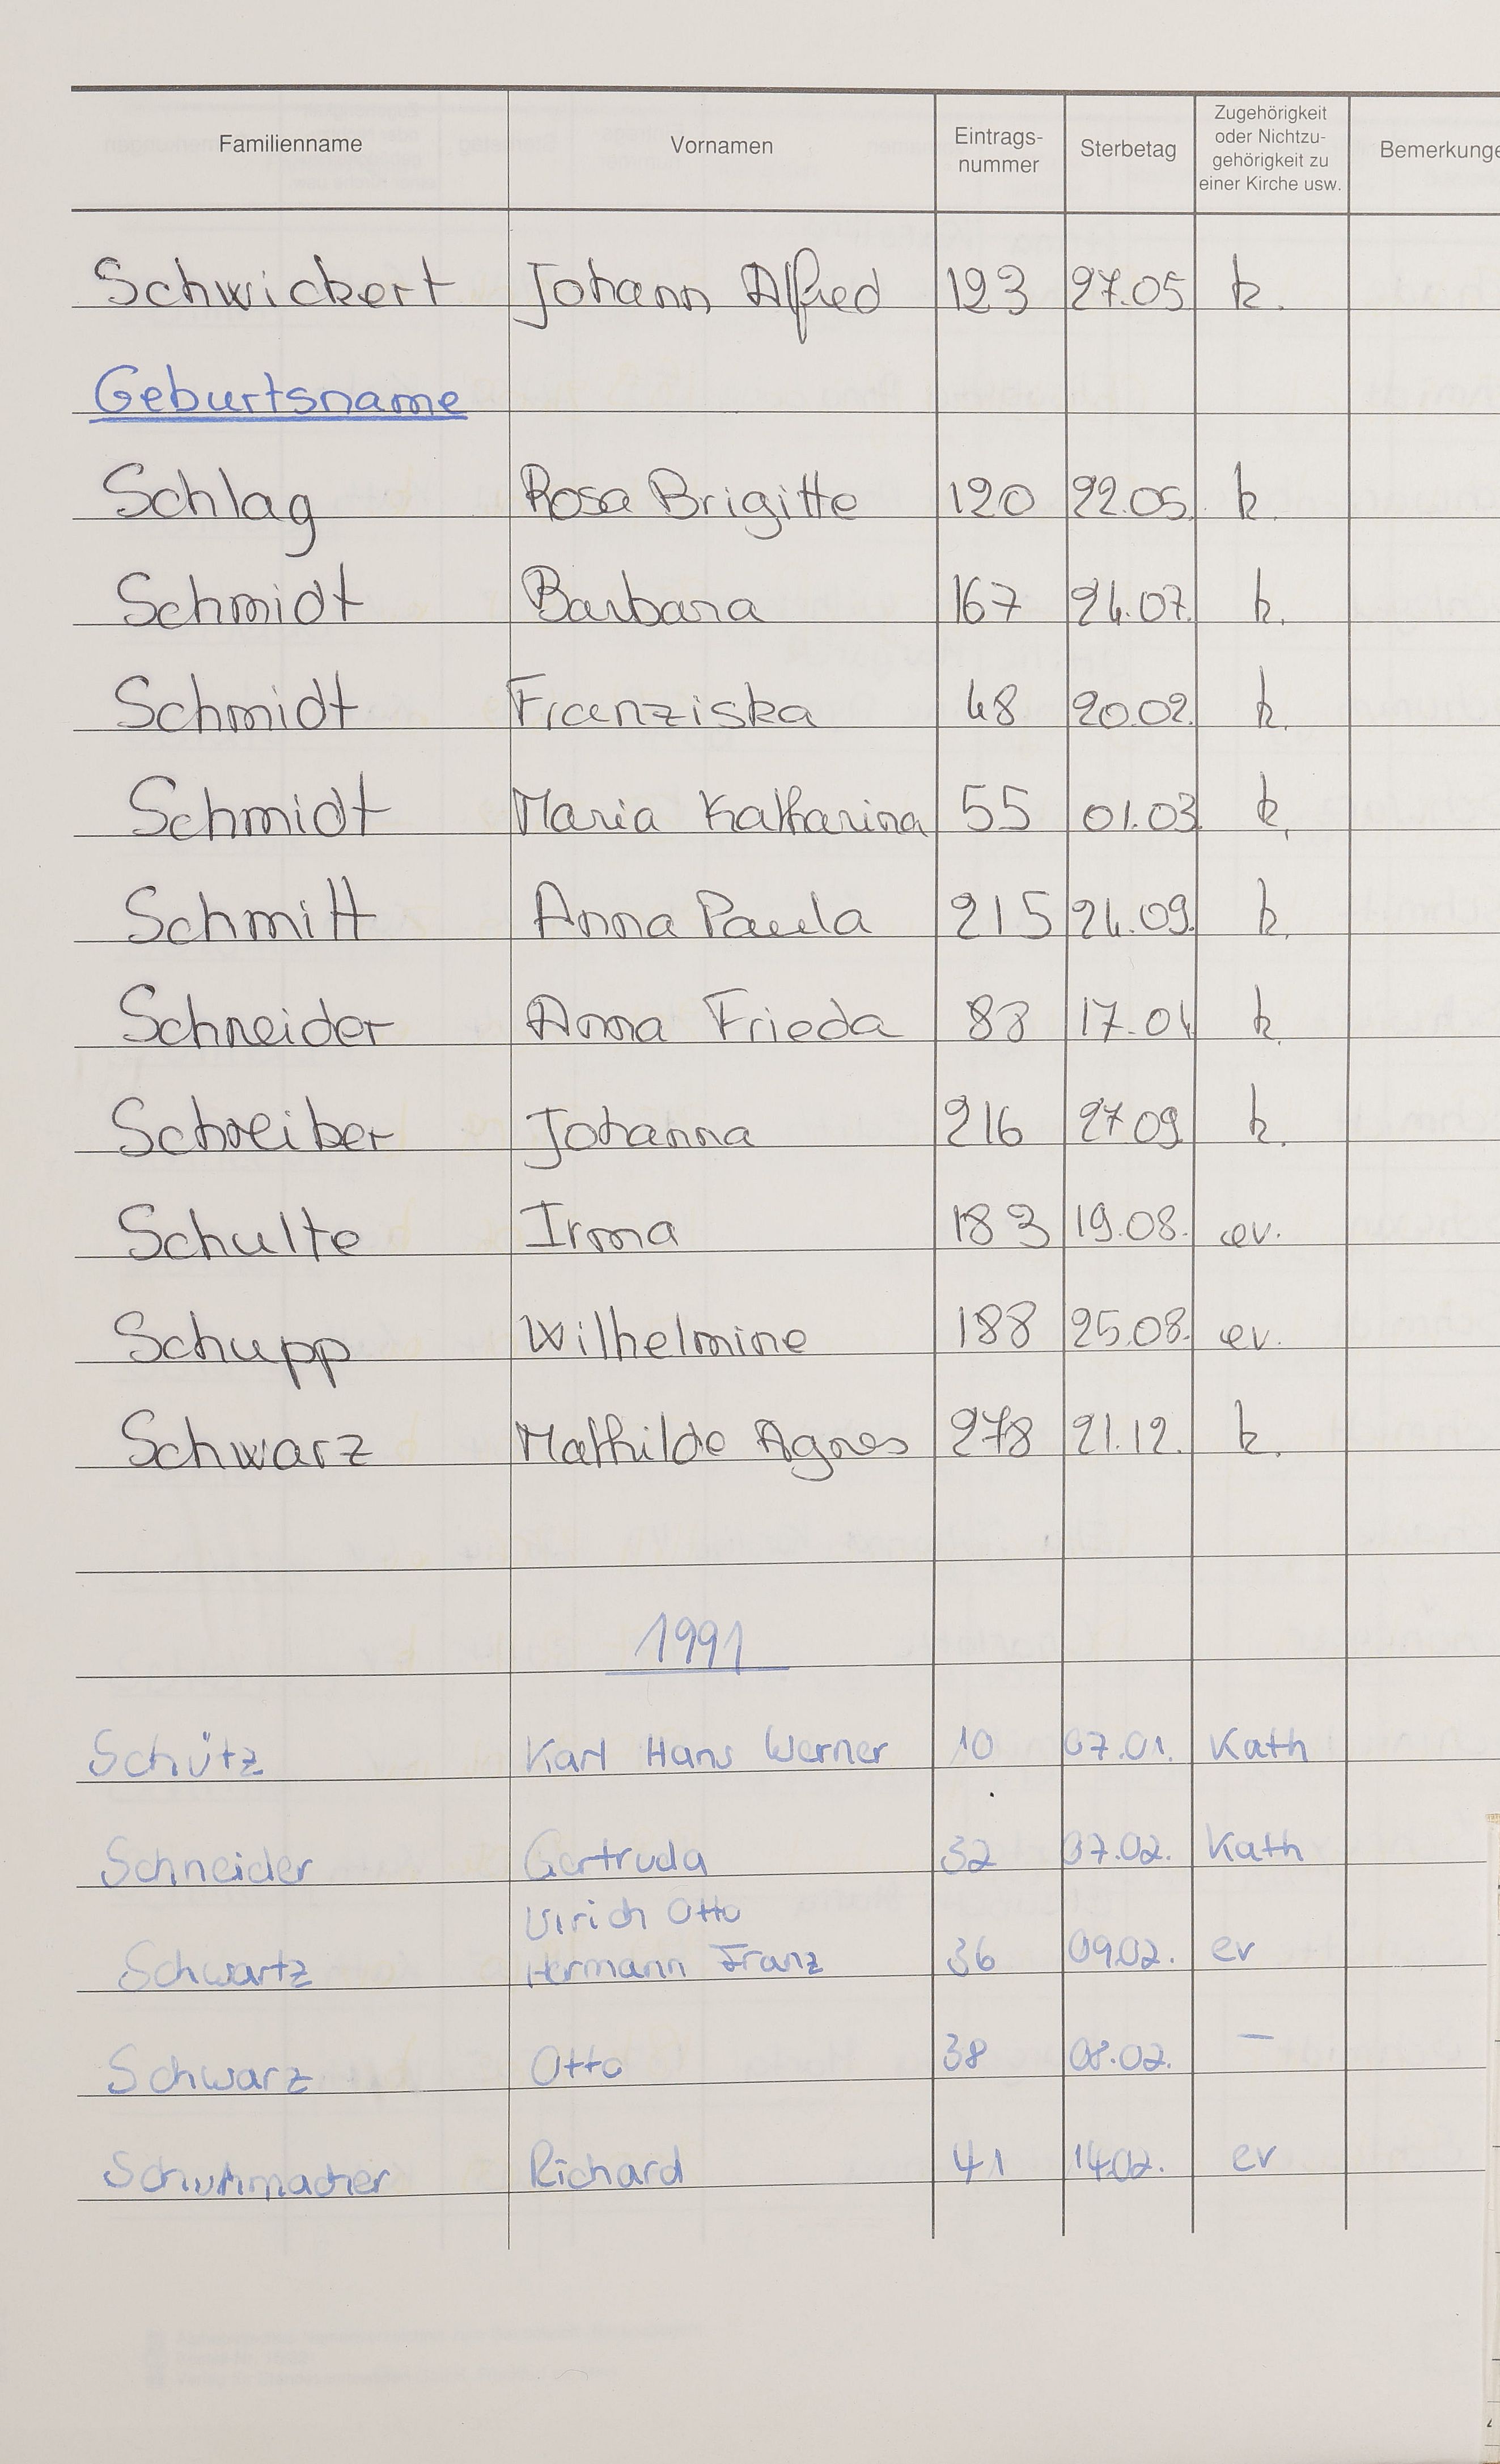 Familienname Vornamen Eintrags-nummer Sterbetag Zugehörigkeit oder Nichtzu-gehörigkeit zu einer Kirche usw. Bemerkunge
Schwickert Johann Alfred 123 27.05 k.
Geburtsname
Schlag Rosa Brigitte 120 22.05. k.
Schmidt Barbara 167 24.07. k.
Schmidt Franziska 48 20.02. k.
Schmidt Maria Katharina 55 01.03. k.
Schmitt Anna Paula 215 24.09. k.
Schneider Anna Frieda 88 17.04 k.
Schreiber Johanna 216 27.09. k.
Schulte Irma 183 19.08. ev.
Schupp Wilhelmine 188 25.08. ev.
Schwarz Mathilde Agnes 278 21.12. k.
1991
Schütz Karl Hans Werner 10 07.01. Kath
Schneider Gertruda 32 07.02. Kath
Ulrich Otto
Schwartz Hermann Franz 36 09.02. ev
Schwarz Otto 38 08.02. —
Schuhmacher Richard 41 14.02. ev